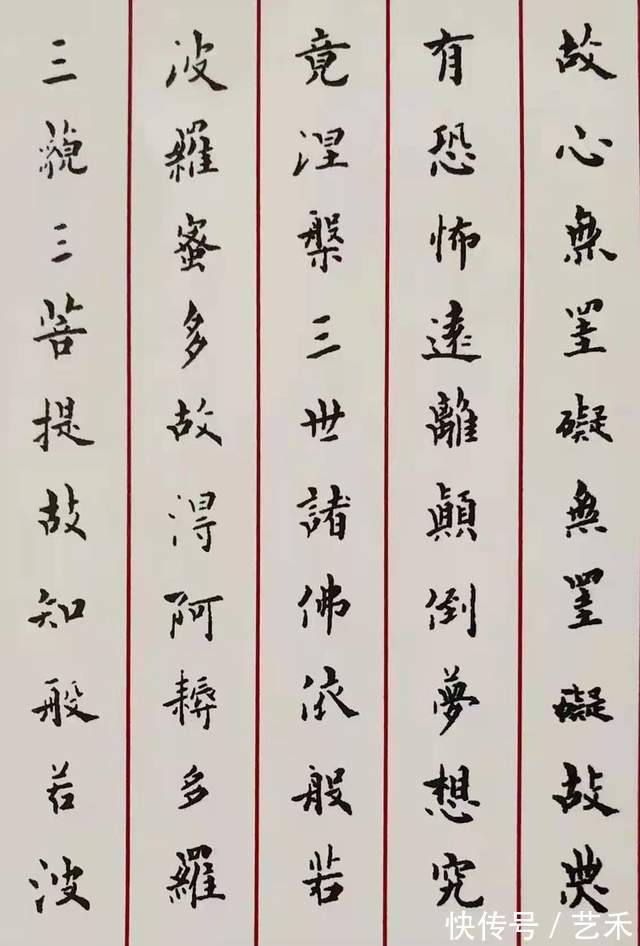 故心無罣礙無罣礙故無
有恐怖遠離顛倒夢想究
竟涅槃三世諸佛依般若
波羅蜜多故得阿耨多羅
三藐三菩提故知般若波
快传号/艺禾